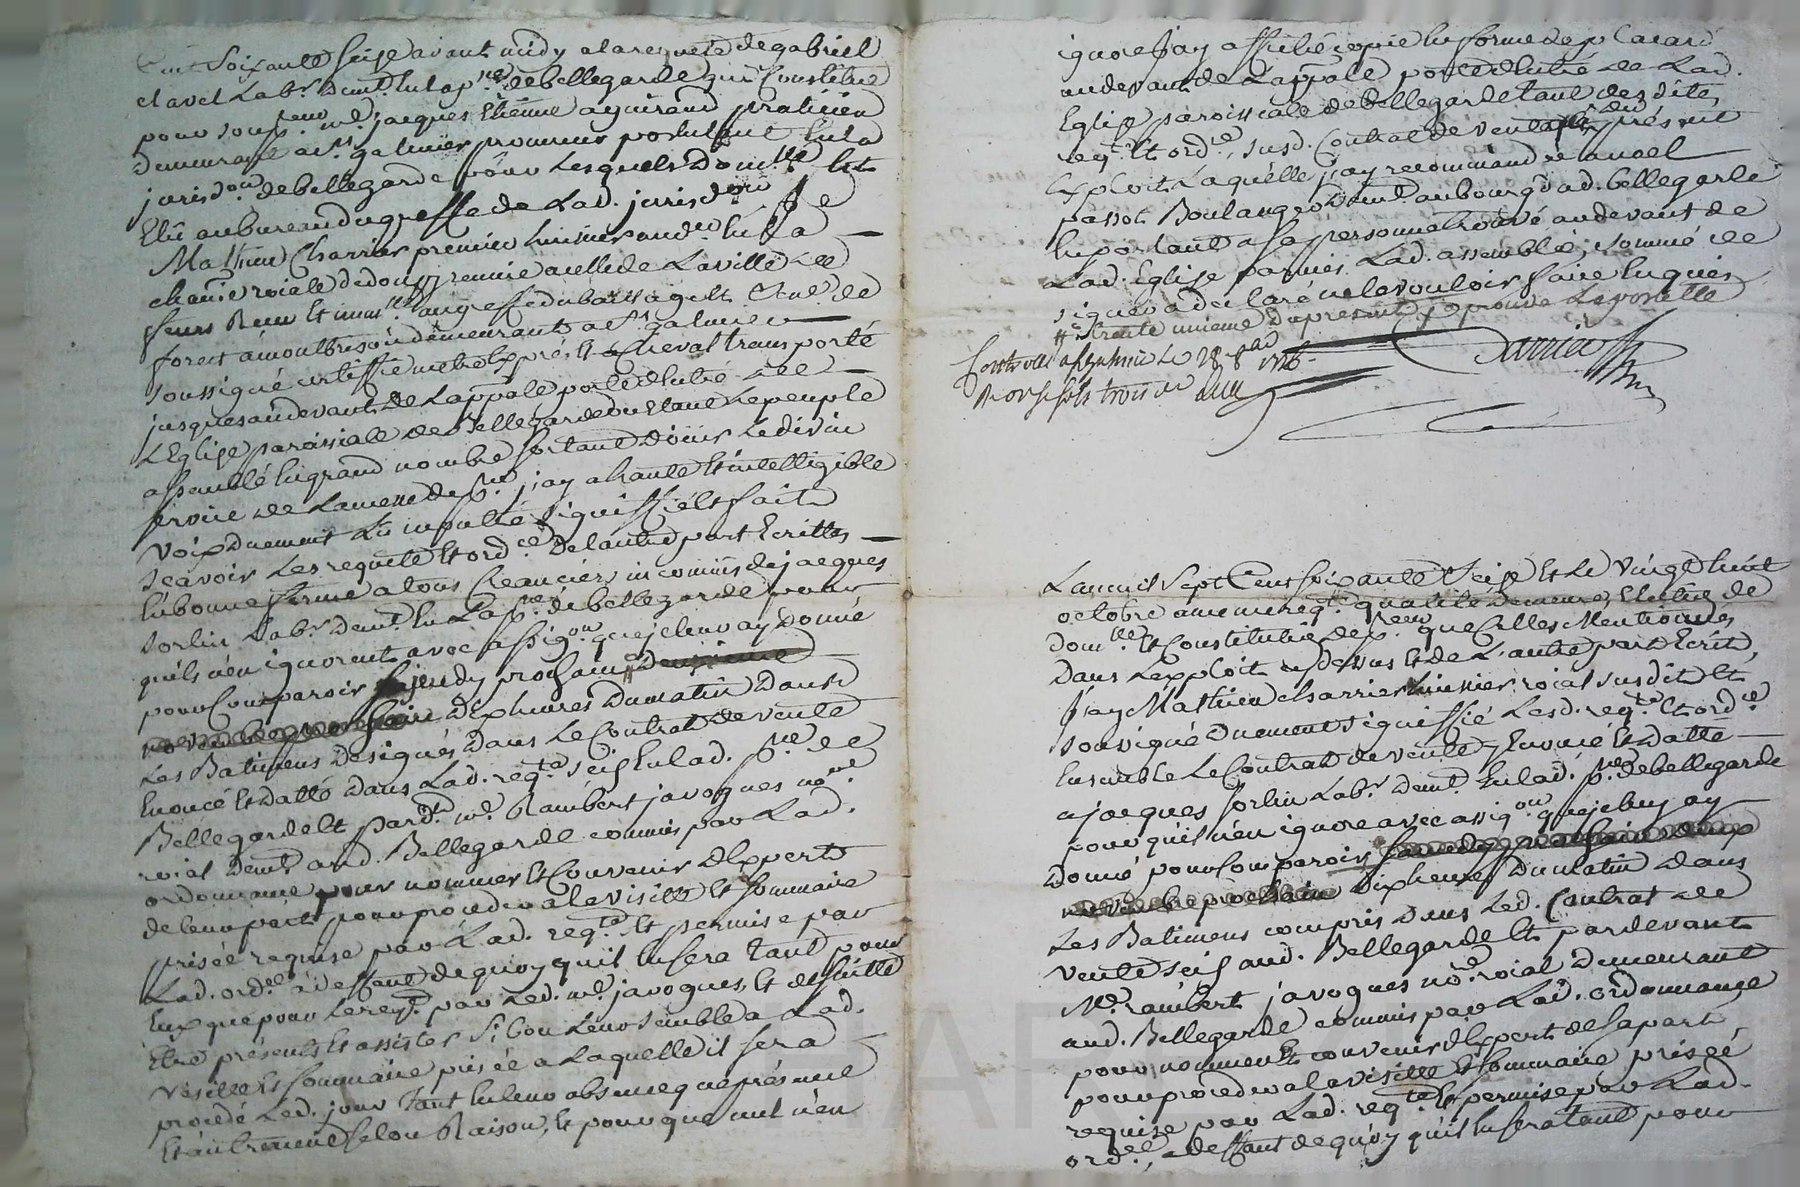 Cent Soixante Seise avant midy a la requete de gabriel
clavel Lab.r dem.t en la p.sse de bellegarde qui Constitue
pour son p.eur m.e jacques Etienne aguiraud praticien
demeurant a s.t galmier procureur postulant en la
jurisd.on de bellegarde pour Lesquels Dom.lle est
Elû au bureau du greffe de Lad. jurisd.on Je
Mathieu Charrier premier huissier aud.er en la
chatnie roiale de donzy reunie a celle de La ville de
feurs Reun et imm.lé au greffe du baillage et Sene. de
forest a montbrison demeurant a s.t galmier
soussigné certiffie m'etre Exprés et a Cheval transporté
jusques au devant de La pp.ale porte d'Entrée de
L'Eglise paroissiale de Bellegarde ou Etant Le peuple
assemblé En grand nombre sortant D'oüir Le divin
service de La messe de p.sse j'ay a haute et intelligible
voix Duement Lû inpulté signiffié et fait
sçavoir Les requete et ord.ce De l'autre part Ecrittes
En bonne forme a tous Creanciers inconnus de jacques
sorlin Lab.r dem.t en La p.sse de bellegarde pour
qu'ils n'en ignorent avec assig.on que je leur ay Donné
pour Comparoir jeudy prochain # deuxieme
novembre prochain Dix heures Du matin Dans
Les Batimens Designés Dans Le Contrat de vente
Enoncé et Datté Dans Lad. req.te seis En lad. p.sse de
Bellegarde et pard.t m.e Rambert javogues no.re
roial dem.t aud. Bellegarde commis par Lad.
ordonnance pour nommer et Convenir d'Experts
de leur part pour proceder a la visitte et sommaire
prisée requise par Lad. req.te et permise par
Lad. ord.ce a deffaut de quoy qu'il En sera tant pour
Eux que pour Le req.t par Led. m.e javogues, et de suitte
Etre présents et assister Si bon Leur semble a Lad.
visitte et sommaire prisée a Laquelle il sera
procédé Led. jour tant En leur absence que présence
et autrement selon Raison, et pour que nul n'en
ignore J'ay affiché copie En forme de p.r Cacard
au devant de La pp.ale porte d'Entrée de Lad.
Eglise paroissiale de Bellegarde tant des dites
req.te et ord.ce, susd. Contrat de vente que du présent
Exploit Laquelle j'ay recommandée a noel
passot Boulanger Dem.t au bourg dud. bellegarde
En parlant a sa personne trouvé au devant de
Lad. Eglise parmis Lad. assemblée, sommé de
signer a declaré ne le vouloir faire Enquis
# trente unieme du present j'approuve La postille
Charrier
Controllé a s.t galmier Le 28 8bre 1776
R onze sols trois d.
L'an mil Sept Cent soixante Seise et Le vingt huit
octobre a meme req.te qualité demeure, Election de
dom.lle et Constitution de p.eur que Celles Mentionnées
Dans L'exploit cy dessus et de L'autre part Ecrits,
J'ay Mathieu charrier huissier roial susdit et
soussigné Duement signiffié Lesd. req.te et ord.ce
Ensemble Le Contrat de vente y Enoncé et Datté
a jacques sorlin Lab.r dem.t En lad. p.sse de bellegarde
pour qu'il n'en ignore avec assig.on que je luy ay
Donné pour Comparoir samedy prochain deux
novembre prochain Dix heures Du matin Dans
Les Batimens compris Dans Led. Contrat de
vente seis aud. Bellegarde et pardevant
M.e rambert javogues no.re roial Demeurant
aud. Bellegarde commis par Lad. ordonnance
pour nommer et convenir d'Expert de sa part
pour proceder a la visitte et sommaire prisée
requise par Lad. req.te et permise par Lad.
ord.ce, a deffaut de quoy qu'il En sera tant pour